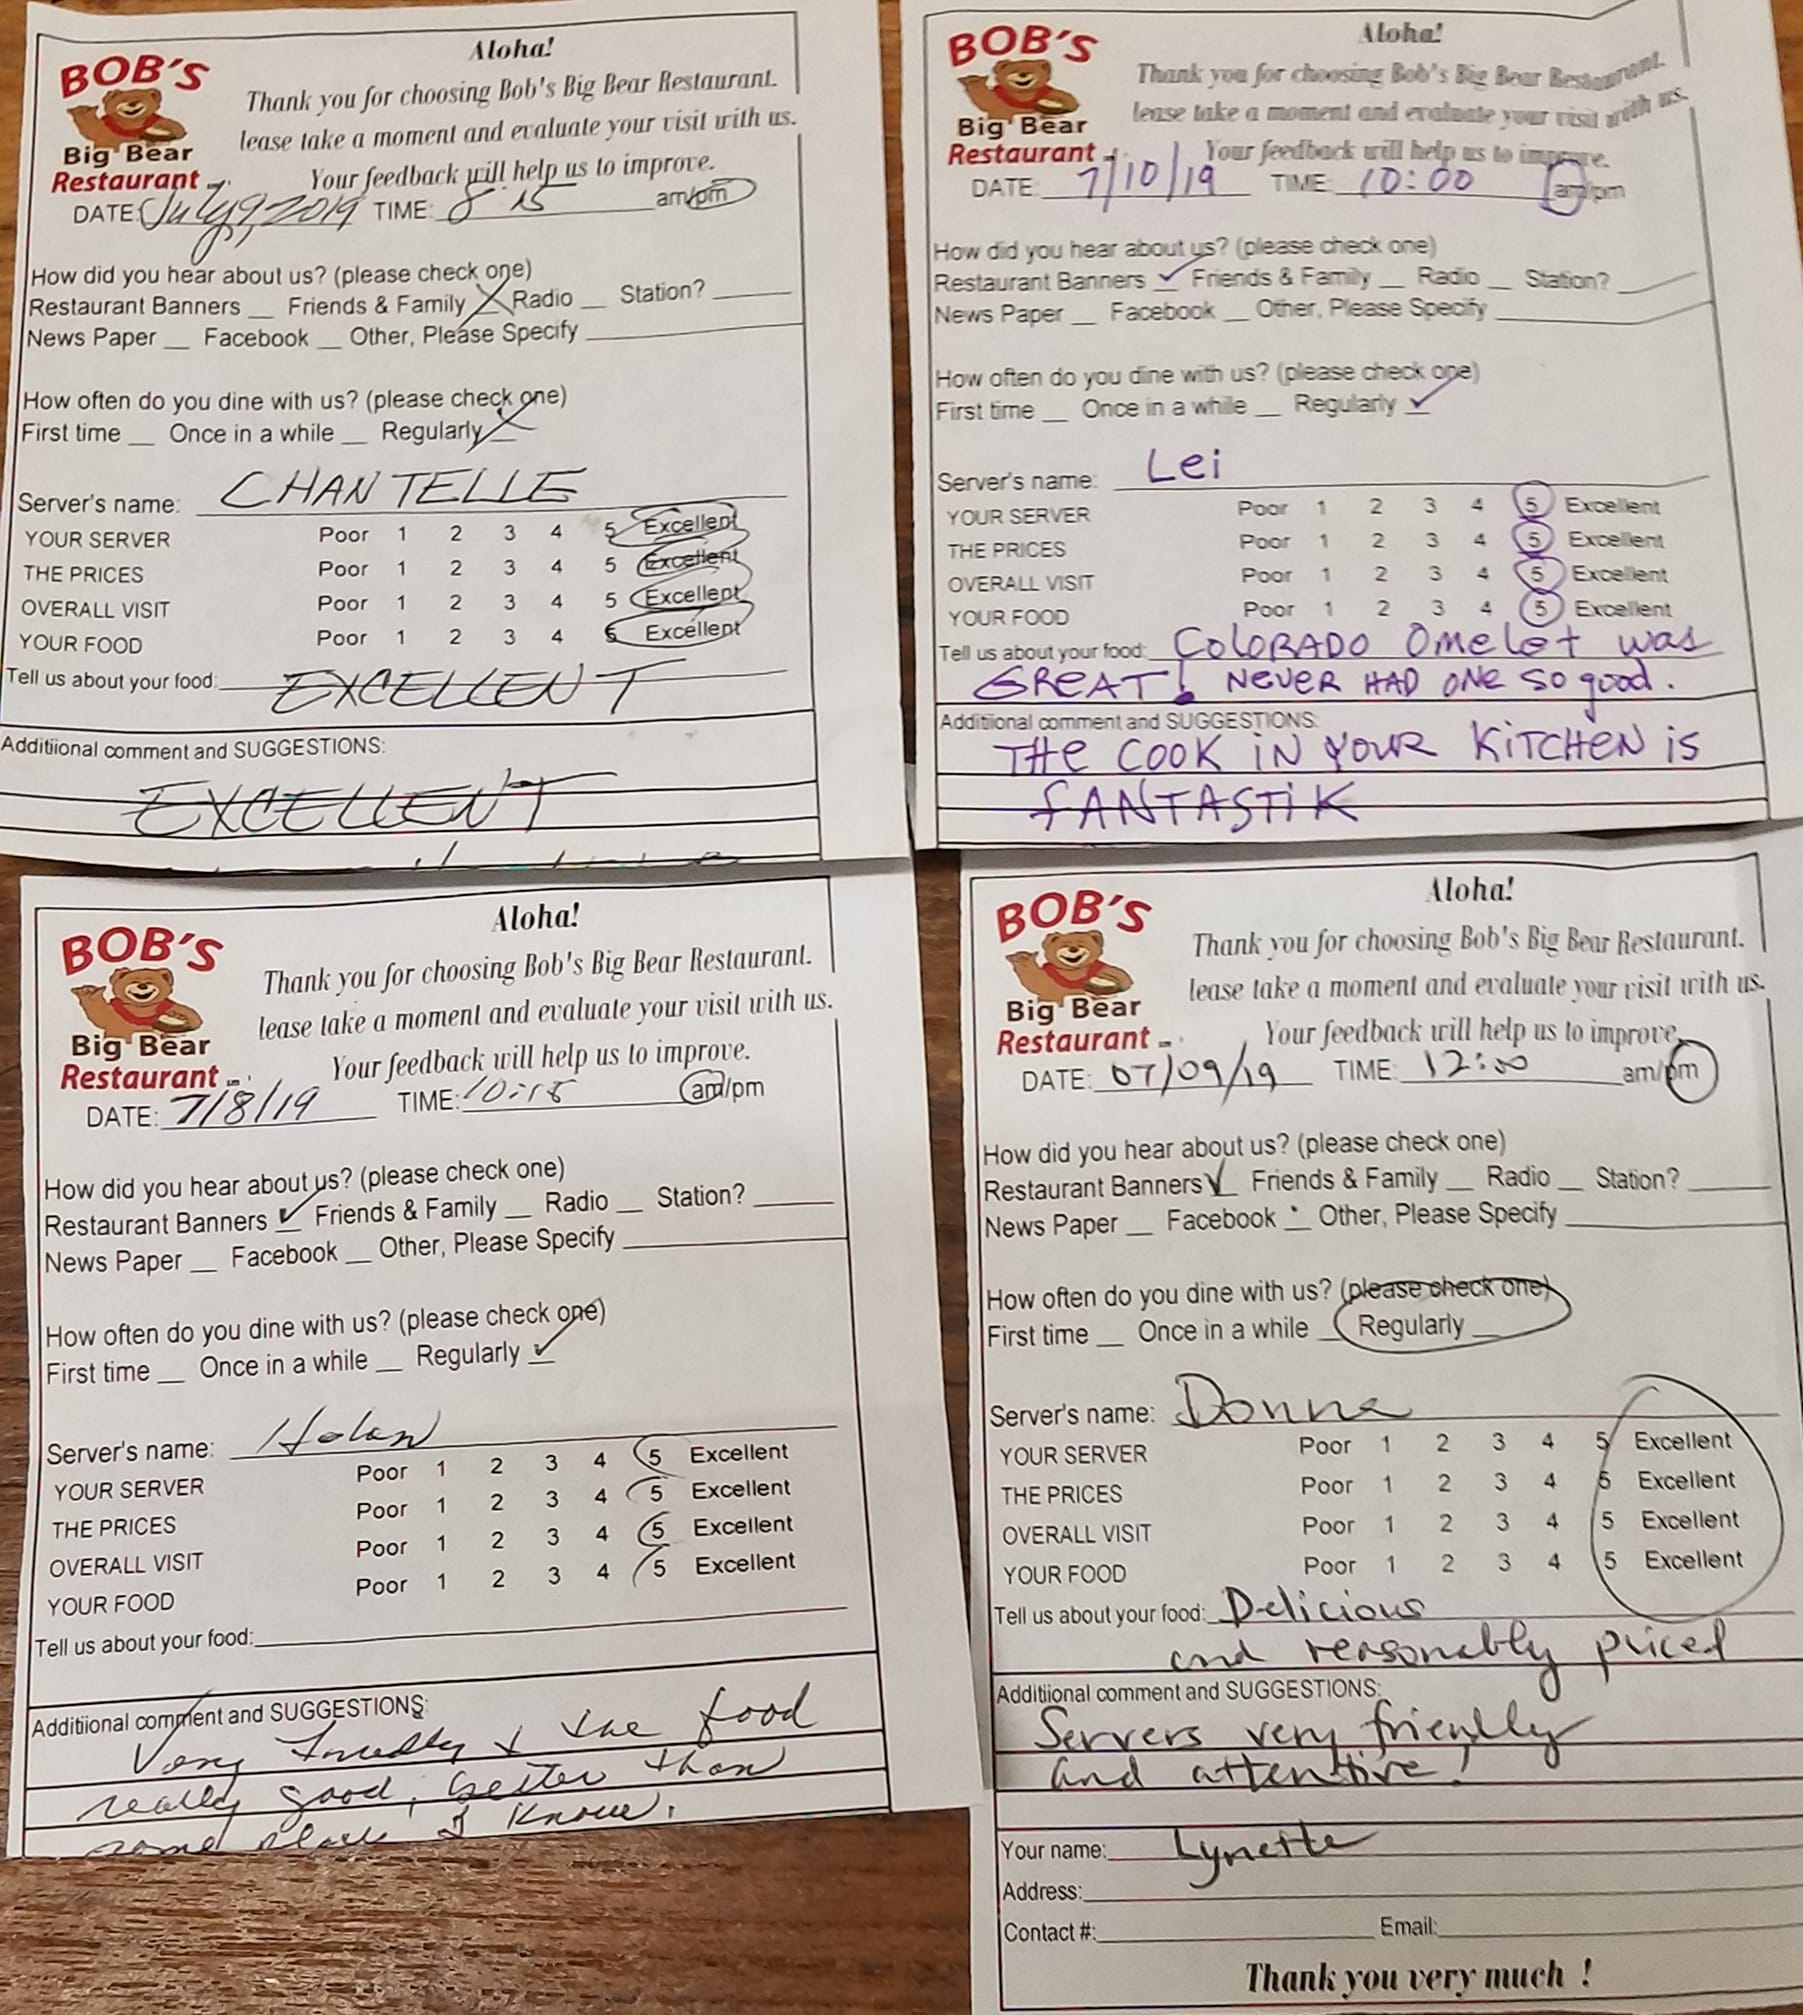 BOB'S
Big Bear
Restaurant
Aloha!
Thank you for choosing Bob's Big Bear Restaurant.
lease take a moment and evaluate your visit with us.
Your feedback will help us to improve.
DATE: July 9, 2019 TIME: 8 15 am/pm
How did you hear about us? (please check one)
Restaurant Banners __ Friends & Family X Radio __ Station? ____
News Paper __ Facebook __ Other, Please Specify ____
How often do you dine with us? (please check one)
First time __ Once in a while __ Regularly X
Server's name: CHANTELLE
YOUR SERVER Poor 1 2 3 4 5 Excellent
THE PRICES Poor 1 2 3 4 5 Excellent
OVERALL VISIT Poor 1 2 3 4 5 Excellent
YOUR FOOD Poor 1 2 3 4 5 Excellent
Tell us about your food: EXCELLENT
Additiional comment and SUGGESTIONS:
EXCELLENT
BOB'S
Big Bear
Restaurant
Aloha!
Thank you for choosing Bob's Big Bear Restaurant.
lease take a moment and evaluate your visit with us.
Your feedback will help us to improve.
DATE: 7/10/19 TIME: 10:00 am/pm
How did you hear about us? (please check one)
Restaurant Banners ✓ Friends & Family __ Radio __ Station? ____
News Paper __ Facebook __ Other, Please Specify ____
How often do you dine with us? (please check one)
First time __ Once in a while __ Regularly ✓
Server's name: Lei
YOUR SERVER Poor 1 2 3 4 5 Excellent
THE PRICES Poor 1 2 3 4 5 Excellent
OVERALL VISIT Poor 1 2 3 4 5 Excellent
YOUR FOOD Poor 1 2 3 4 5 Excellent
Tell us about your food: COLORADO Omelet was
GREAT! NEVER HAD ONE SO good.
Additiional comment and SUGGESTIONS:
THE COOK IN YOUR KITCHEN is
FANTASTIK
BOB'S
Big Bear
Restaurant
Aloha!
Thank you for choosing Bob's Big Bear Restaurant.
lease take a moment and evaluate your visit with us.
Your feedback will help us to improve.
DATE: 7/8/19 TIME: 10:15 am/pm
How did you hear about us? (please check one)
Restaurant Banners ✓ Friends & Family __ Radio __ Station? ____
News Paper __ Facebook __ Other, Please Specify ____
How often do you dine with us? (please check one)
First time __ Once in a while __ Regularly ✓
Server's name:
YOUR SERVER Poor 1 2 3 4 5 Excellent
THE PRICES Poor 1 2 3 4 5 Excellent
OVERALL VISIT Poor 1 2 3 4 5 Excellent
YOUR FOOD Poor 1 2 3 4 5 Excellent
Tell us about your food:
Additiional comment and SUGGESTIONS:
Very friendly & the food
really good, better than
some places I know.
BOB'S
Big Bear
Restaurant
Aloha!
Thank you for choosing Bob's Big Bear Restaurant.
lease take a moment and evaluate your visit with us.
Your feedback will help us to improve.
DATE: 07/09/19 TIME: 12:00 am/pm
How did you hear about us? (please check one)
Restaurant Banners ✓ Friends & Family __ Radio __ Station? ____
News Paper __ Facebook __ Other, Please Specify ____
How often do you dine with us? (please check one)
First time __ Once in a while __ Regularly __
Server's name: Donna
YOUR SERVER Poor 1 2 3 4 5 Excellent
THE PRICES Poor 1 2 3 4 5 Excellent
OVERALL VISIT Poor 1 2 3 4 5 Excellent
YOUR FOOD Poor 1 2 3 4 5 Excellent
Tell us about your food: Delicious
and reasonably priced
Additiional comment and SUGGESTIONS:
Servers very friendly
and attentive!
Your name: Lynette
Address:
Contact #: Email:
Thank you very much !